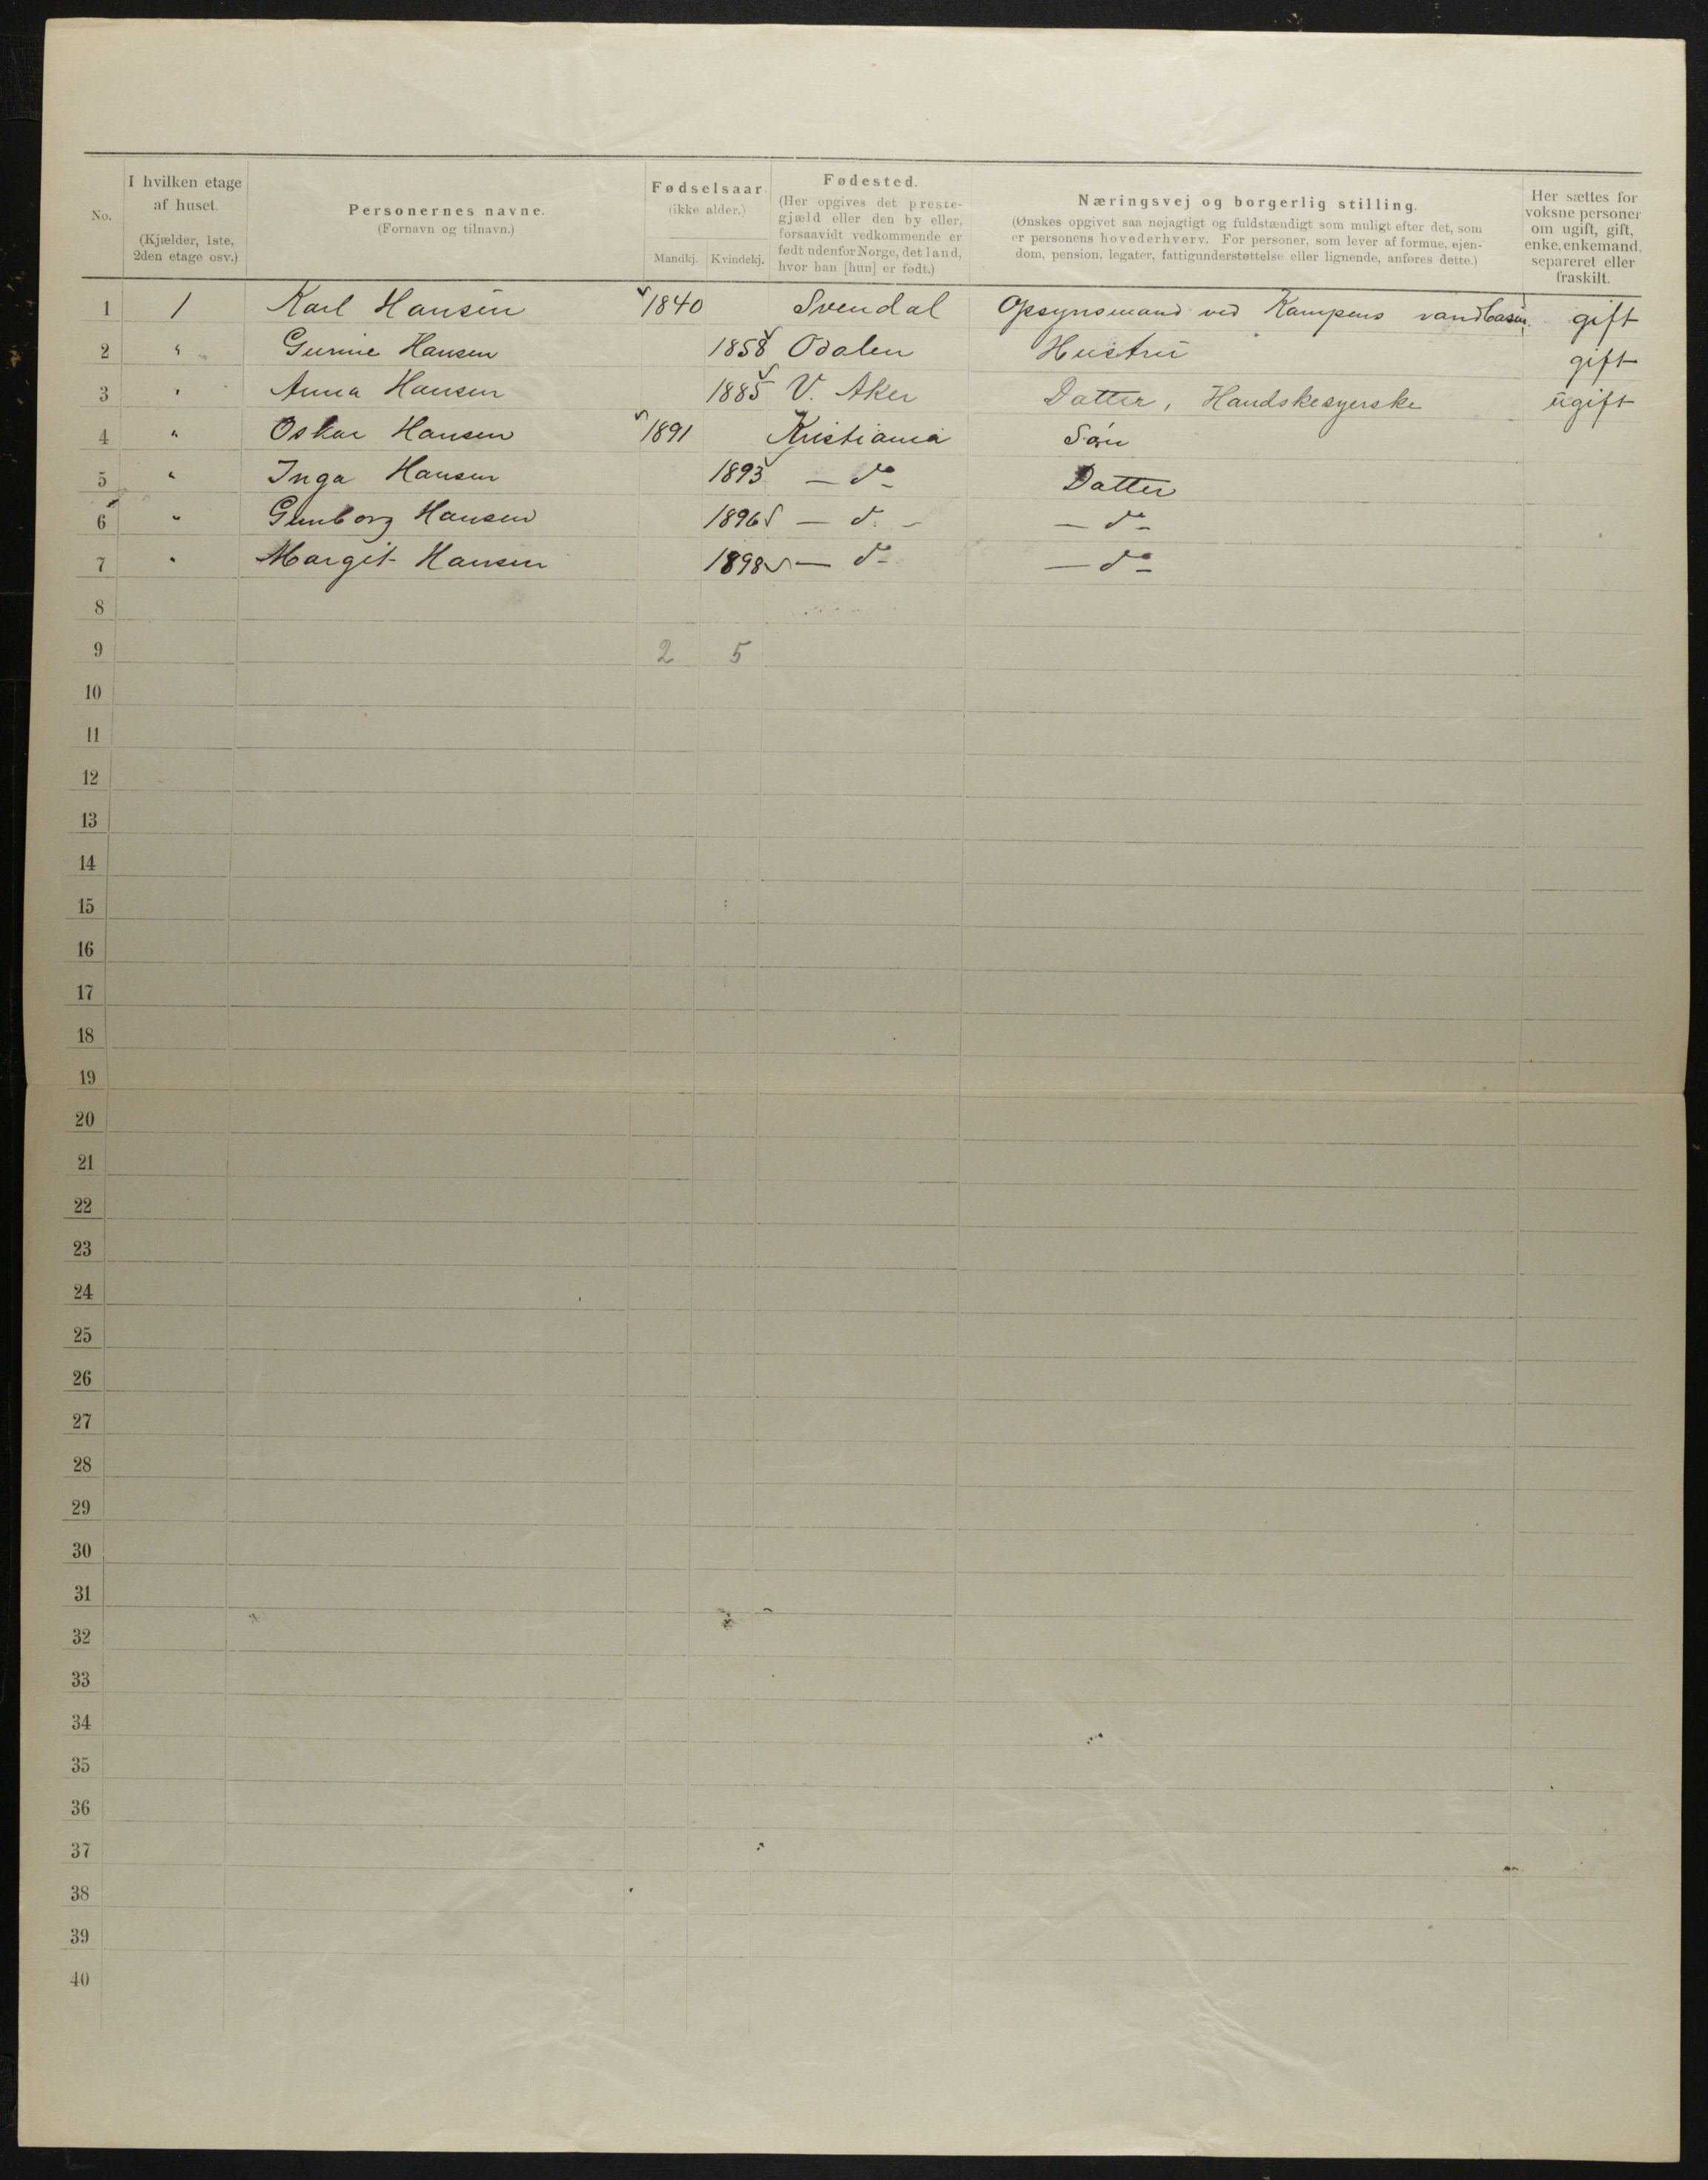 No.	I hvilken etage af huset. (Kjælder, 1ste, 2den etage osv.)	Personernes navne. (Fornavn og tilnavn.)	Fødselsaar (ikke alder.) Mandkj. Kvindekj.	Fødested. (Her opgives det prestegjæld eller den by eller, forsaavidt vedkommende er født udenfor Norge, det land, hvor han [hun] er født.)	Næringsvej og borgerlig stilling. (Ønskes opgivet saa nøjagtigt og fuldstændigt som muligt efter det, som er personens hovederhverv. For personer, som lever af formue, ejendom, pension, legater, fattigunderstøttelse eller lignende, anføres dette.)	Her sættes for voksne personer om ugift, gift, enke, enkemand, separeret eller fraskilt.
1 1 Karl Hansen 1840 Svendal Opsynsmand ved Kampens vandbasin gift
2 " Gunine Hansen 1858 Odalen Hustru gift
3 " Anna Hansen 1885 V. Aker Datter, Handskesyerske ugift
4 " Oskar Hansen 1891 Kristiania Søn
5 " Inga Hansen 1893 — do — Datter
6 " Gunborg Hansen 1896 — d. — — do —
7 " Margit Hansen 1898 — do — — do —
8
9 2 5
10
11
12
13
14
15
16
17
18
19
20
21
22
23
24
25
26
27
28
29
30
31
32
33
34
35
36
37
38
39
40